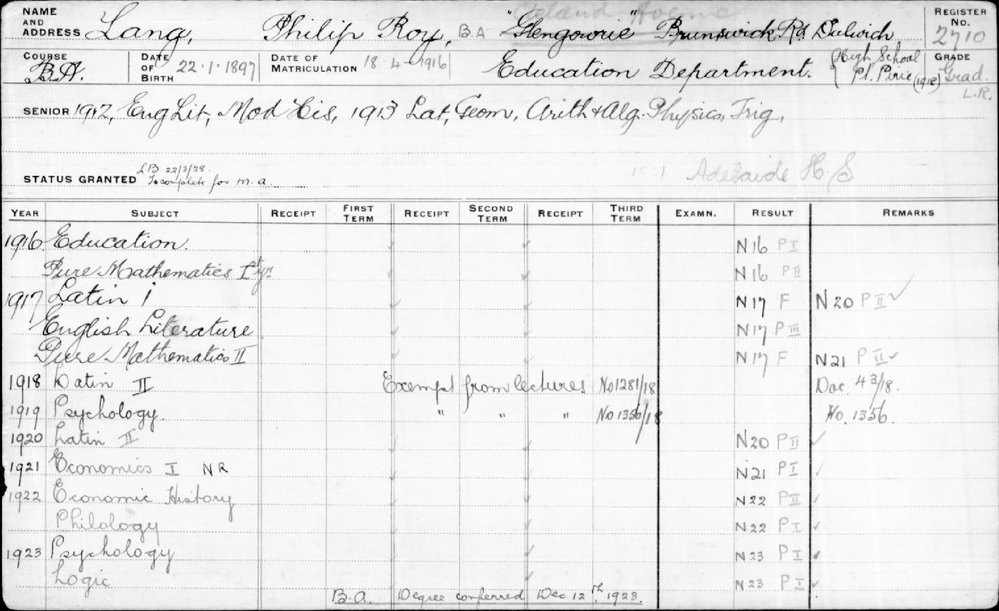 NAME AND ADDRESS Lang, Philip Roy, B A "Glengowrie" Brunswick Rd. Dulwich REGISTER No. 2710
COURSE B.A. DATE OF BIRTH 22.1.1897 DATE OF MATRICULATION 18.4.1916 Education Department. (High School Pt. Pirie (1912) GRADE Grad. L.R.
SENIOR 1912, Eng Lit, Mod His, 1913 Lat, Geom, Arith & Alg. Physics, Trig,
STATUS GRANTED L.B. 22/3/28. To complete for M.A. Adelaide H S
YEAR SUBJECT RECEIPT FIRST TERM RECEIPT SECOND TERM RECEIPT THIRD TERM EXAMN. RESULT REMARKS
1916 Education. N16 P I
Pure Mathematics I N16 P II
1917 Latin I N17 F N20 P II ✓
English Literature N17 P III
Pure Mathematics II N17 F N21 P II ✓
1918 Latin II Exempt from lectures No 1281/18 Doc 43/18.
1919 Psychology. " " " No 1356/18 No. 1356
1920 Latin II N20 P II ✓
1921 Economics I NR N21 P I ✓
1922 Economic History N22 P II ✓
Philology N22 P I ✓
1923 Psychology N23 P I ✓
Logic N23 P I ✓
B.A. Degree conferred Dec 12th, 1923.